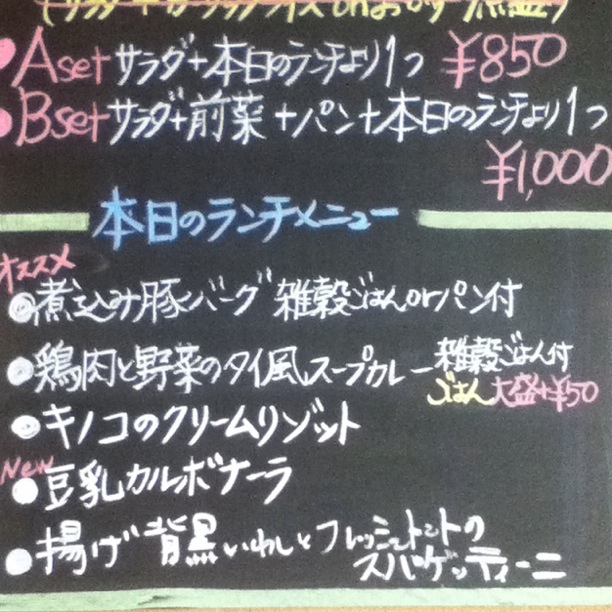 Aset サラダ+本日のランチより1つ ¥850
Bset サラダ+前菜+パン+本日のランチより1つ
¥1,000
本日のランチメニュー
オススメ
煮込み豚バーグ 雑穀ごはんorパン付
鶏肉と野菜のタイ風スープカレー 雑穀ごはん付
ごはん大盛+¥50
キノコのクリームリゾット
New
豆乳カルボナーラ
揚げ背黒いわしとフレッシュトマトの
スパゲッティーニ